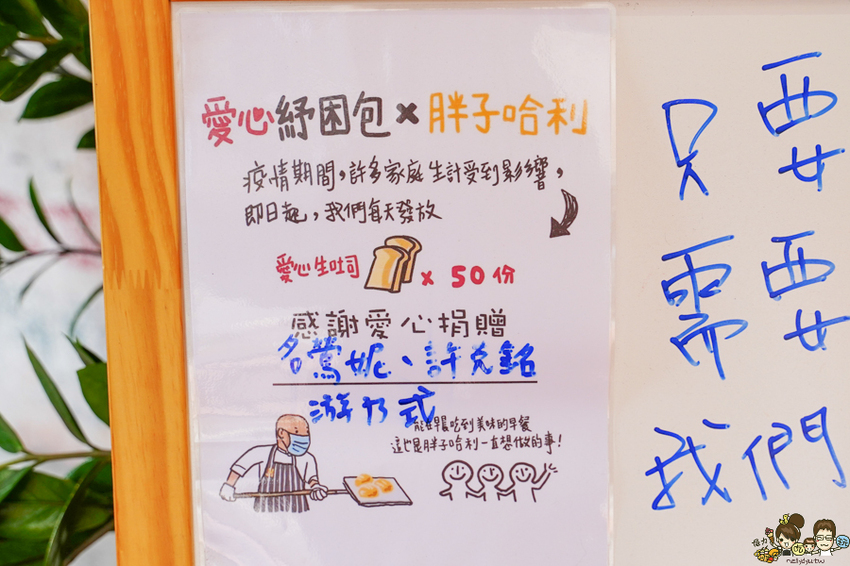 愛心紓困包×胖子哈利
疫情期間,許多家庭生計受到影響,
即日起,我們每天發放
愛心生吐司 x 50份
感謝愛心捐贈
鶯妮、許克銘
游乃式
能在早晨吃到美味的早餐
這也是胖子哈利一直想做的事!
只要
需要
我們
nelydutw